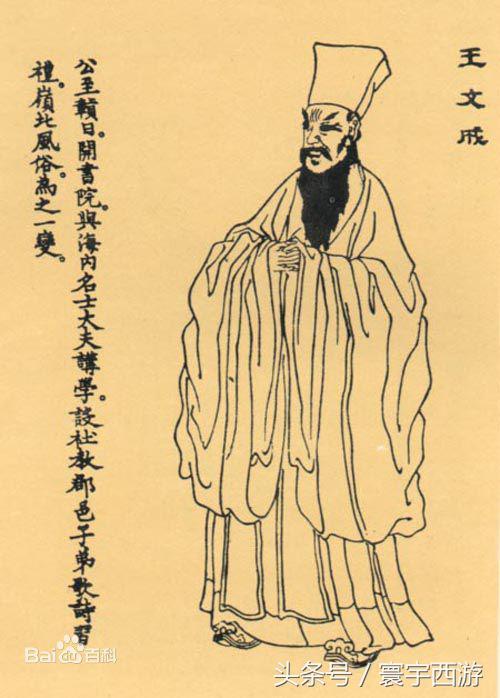 王文成
公至贛日。開書院。與海内名士大夫講學。設社教郡邑子弟歌詩習
禮。嶺北風俗。為之一變。
Bai百科
头条号/寰宇西游